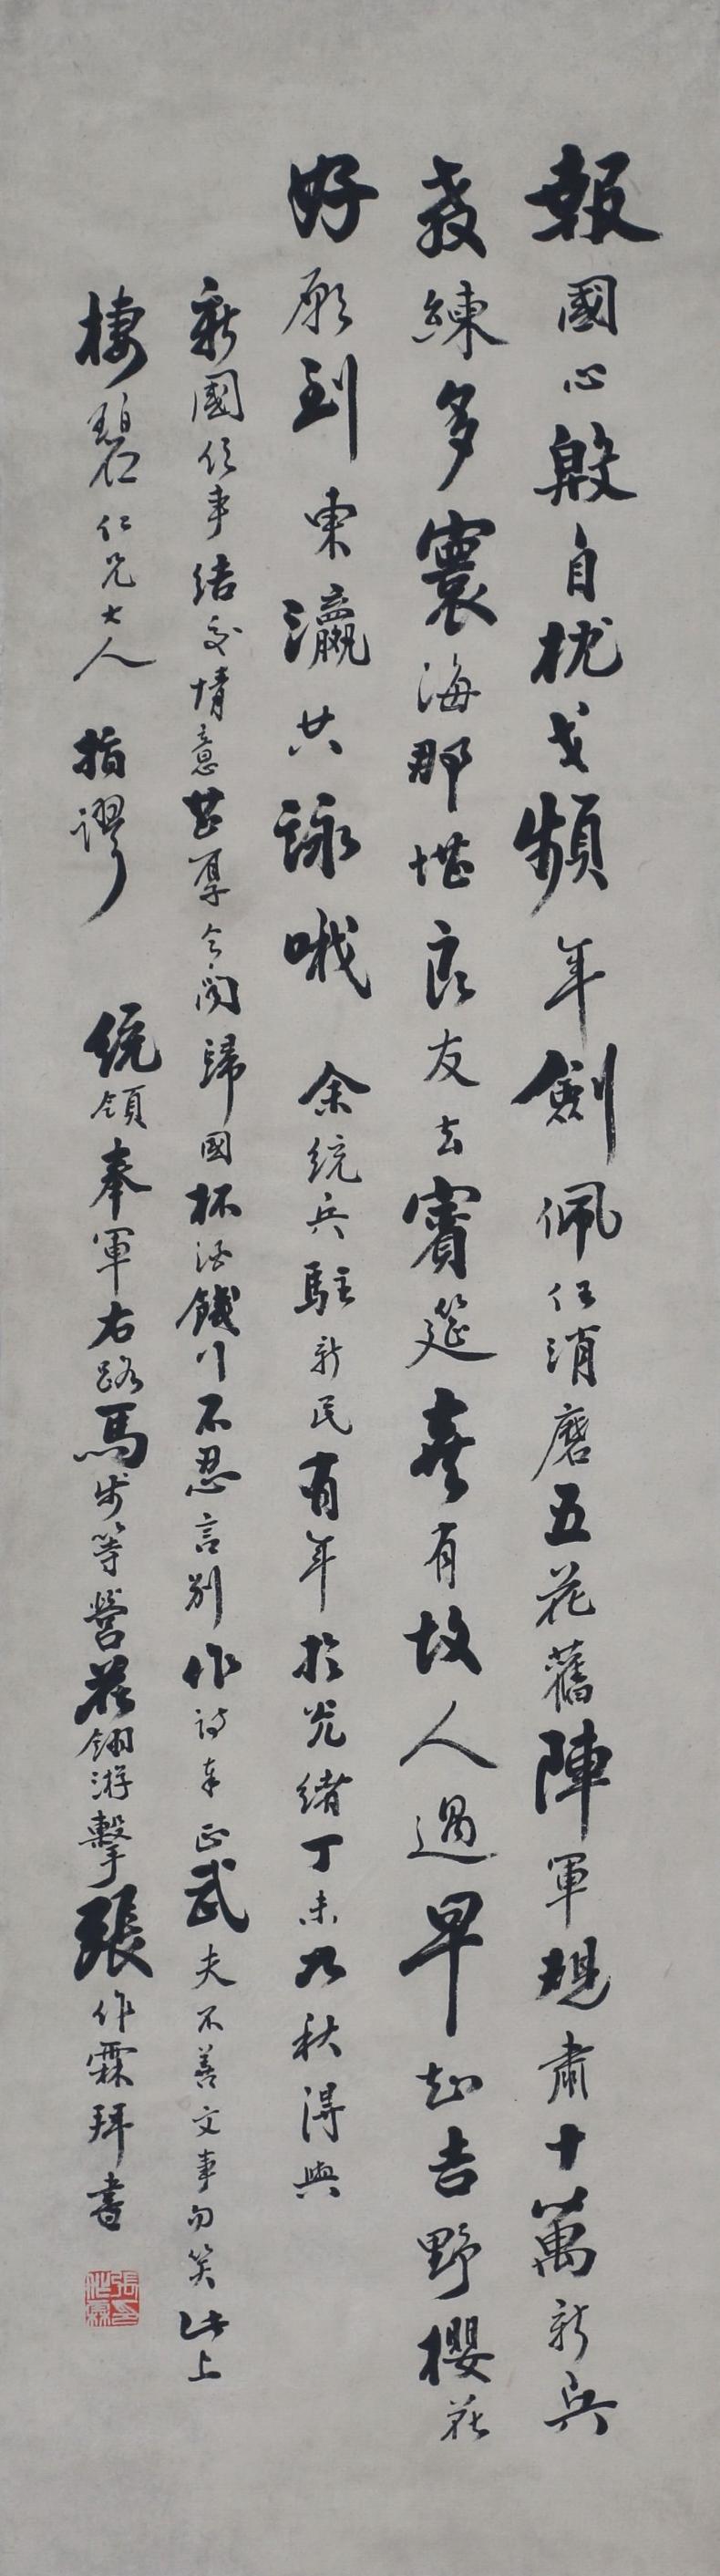 報國心殷自枕戈頻年劍佩任消磨五花舊陣軍規肅十萬新兵
教練多寰海那堪良友去賓筵喜有故人過早知吉野櫻花
好願到東瀛共詠哦 余統兵駐新民有年於光緒丁未九秋得與
新國仁事結交情意甚厚今聞歸國杯酒餞行不忍言別作詩奉正武夫不善文事勿笑此上
棲碧仁兄大人 指謬 統領奉軍右路馬步等營花翎游擊張作霖拜書
張作霖印